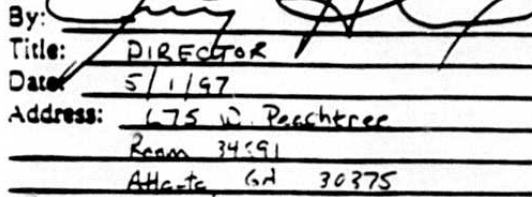 By:
Title: DIRECTOR
Date: 5/1/97
Address: 675 W. Peachtree
Room 34S91
Atlanta GA 30375